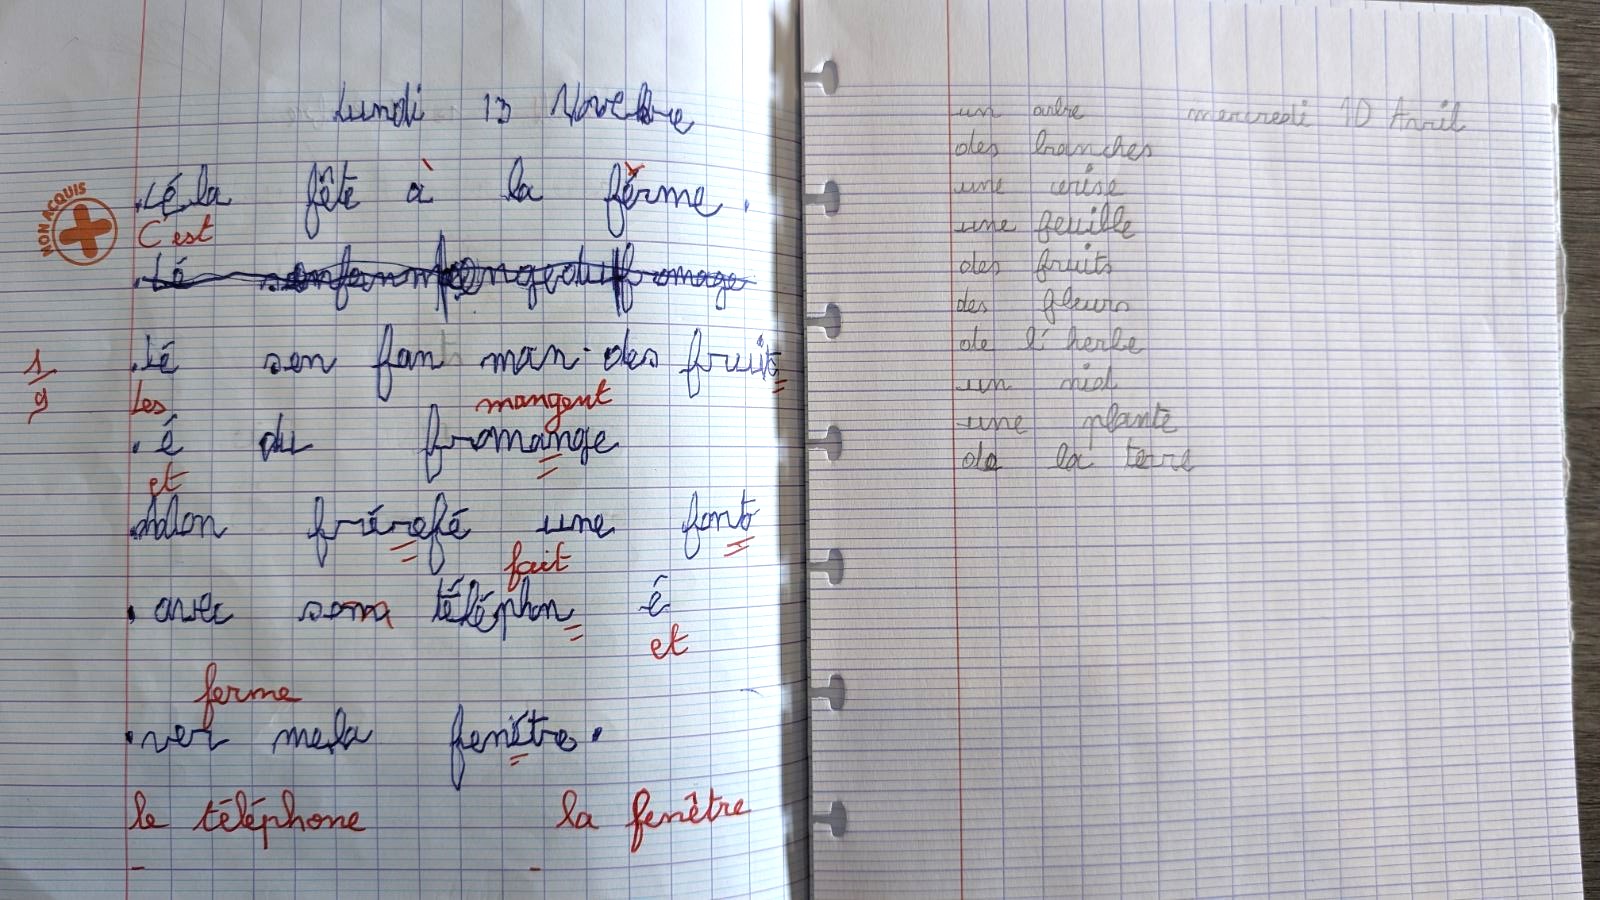 Lundi 13 Novembre
.Lé la fête à la ferme.
NON ACQUIS
C'est
.Lé sen fan man-des fruits
1/9
Les
mangent
.é du fromange
et
Mon frérefé une fonto
fait
. avec som téléphon é
et
ferme
.ver mela fenétre.
le téléphone la fenêtre
un arbre mercredi 10 Avril
des branches
une cerise
une feuille
des fruits
des fleurs
de l'herbe
un nid
une plante
de la terre